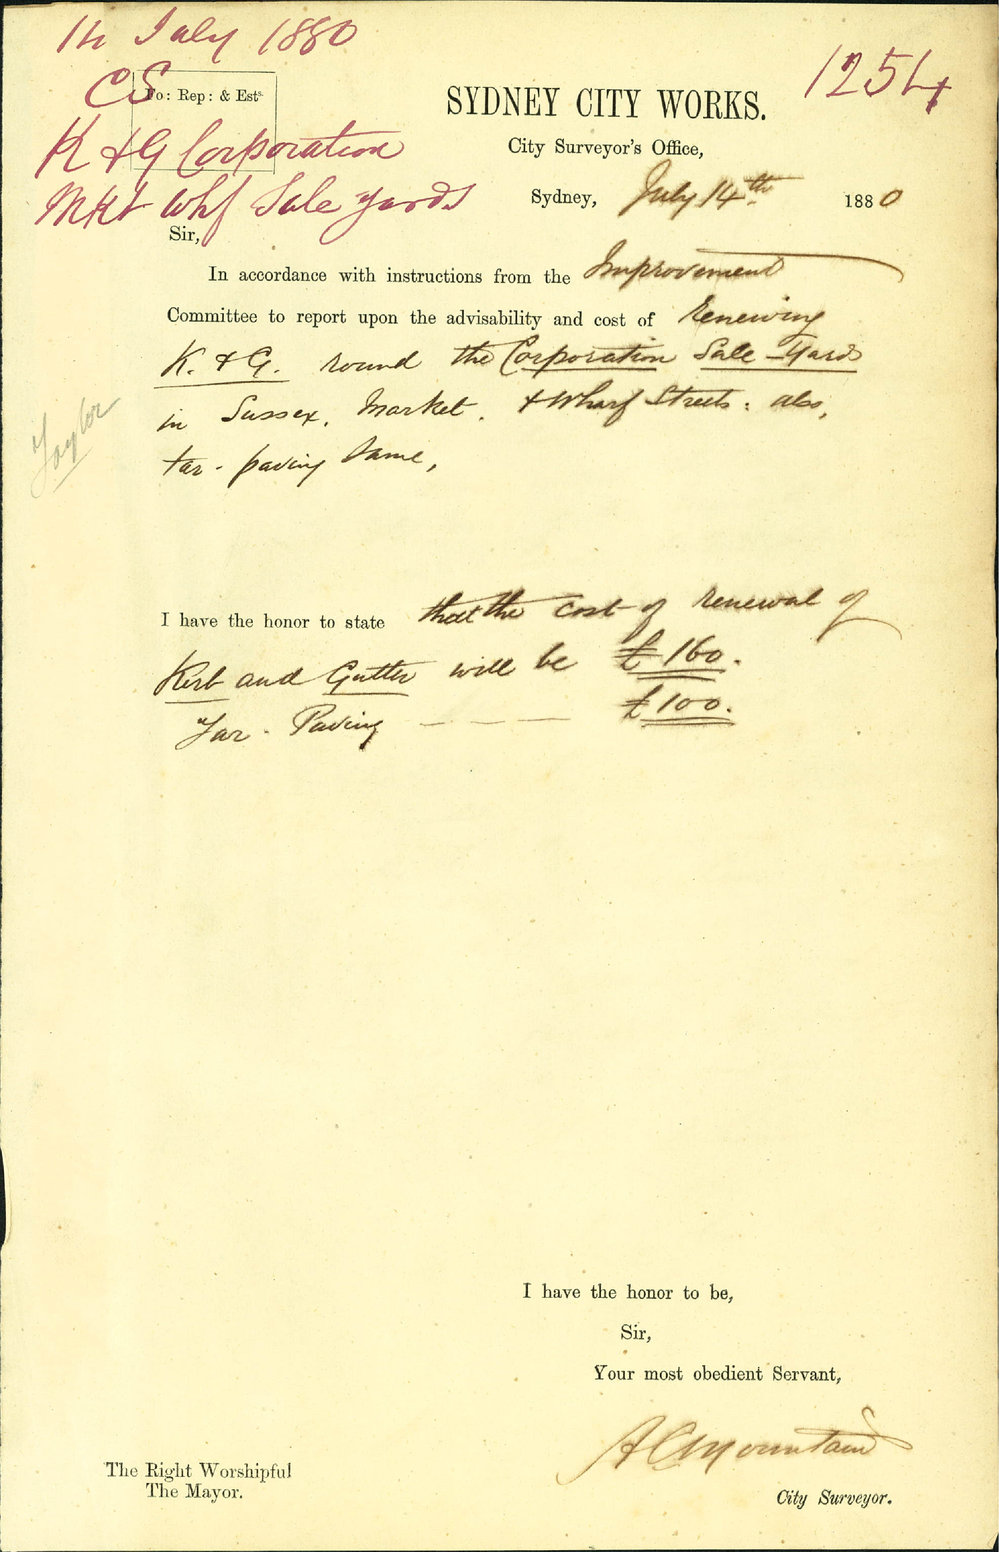 14 July 1880
1254
CS
Fo: Rep: & Ests.
K & G Corporation
Mkt Whf Sale Yards
SYDNEY CITY WORKS.
City Surveyor's Office,
Sydney, July 14th 1880
Sir,
In accordance with instructions from the Improvement
Committee to report upon the advisability and cost of Renewing
K. & G. round the Corporation Sale-Yards
in Sussex, Market, & Wharf Streets: also,
tar-paving same,
Taylor
I have the honor to state that the cost of renewal of
Kerb and Gutter will be £160.
Tar-Paving — — — £100.
I have the honor to be,
Sir,
Your most obedient Servant,
A C Mountain
City Surveyor.
The Right Worshipful
The Mayor.